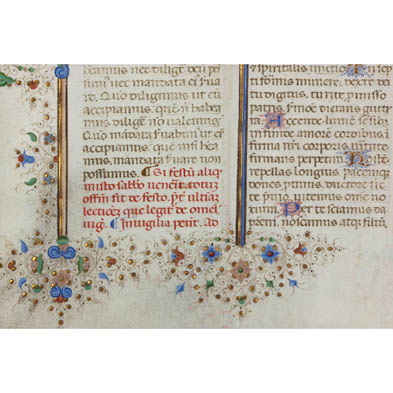 beamus nec diligere deum pos
simus nec mandata eius serua
re. Quo diligimus ut eum
accipiamus. quem nisi habea
mus. diligere non ualemus.
mandata seruabimus ut eum
accipiamus. quem nisi habea
mus. mandata seruare non
possimus. Si festum aliquod
in isto sabbato uenerit. totum
officium fit de festo. preter ultimam
lectionem que legitur de omel
ug. In uigilia pent. Ad
spiritalis unctio.
tiformis munere. dextre de
tu digitus. tu rite promisso
patris. sermone ditans gutt
Accende lumen sensibus.
infunde amorem cordibus.
firma nostri corporis uirtute
firmans perpetim. Hostem
repellas longius. pacemque
dones protinus. ductore sic te
preuio. uitemus omne no
xium. Per te sciamus da
patrem. noscamus atque filium.